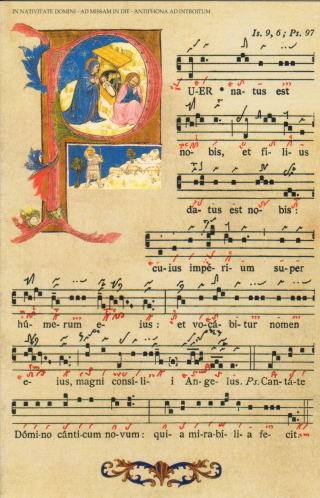 IN NATIVITATE DOMINI - AD MISSAM IN DIE - ANTIPHONA AD INTROITUM
Is. 9, 6 ; Ps. 97
PU-ER * na- tus est
no- bis, et fí- li- us
da- tus est no- bis :
cu- ius impé- ri- um su-per
hú- me-rum e- ius : et vo-cá- bi-tur nomen
e- ius, magni consí-li- i An-ge- lus. Ps. Can-tá-te
Dómi-no cánti-cum no-vum : qui- a mi-ra-bí- li- a fe- cit.